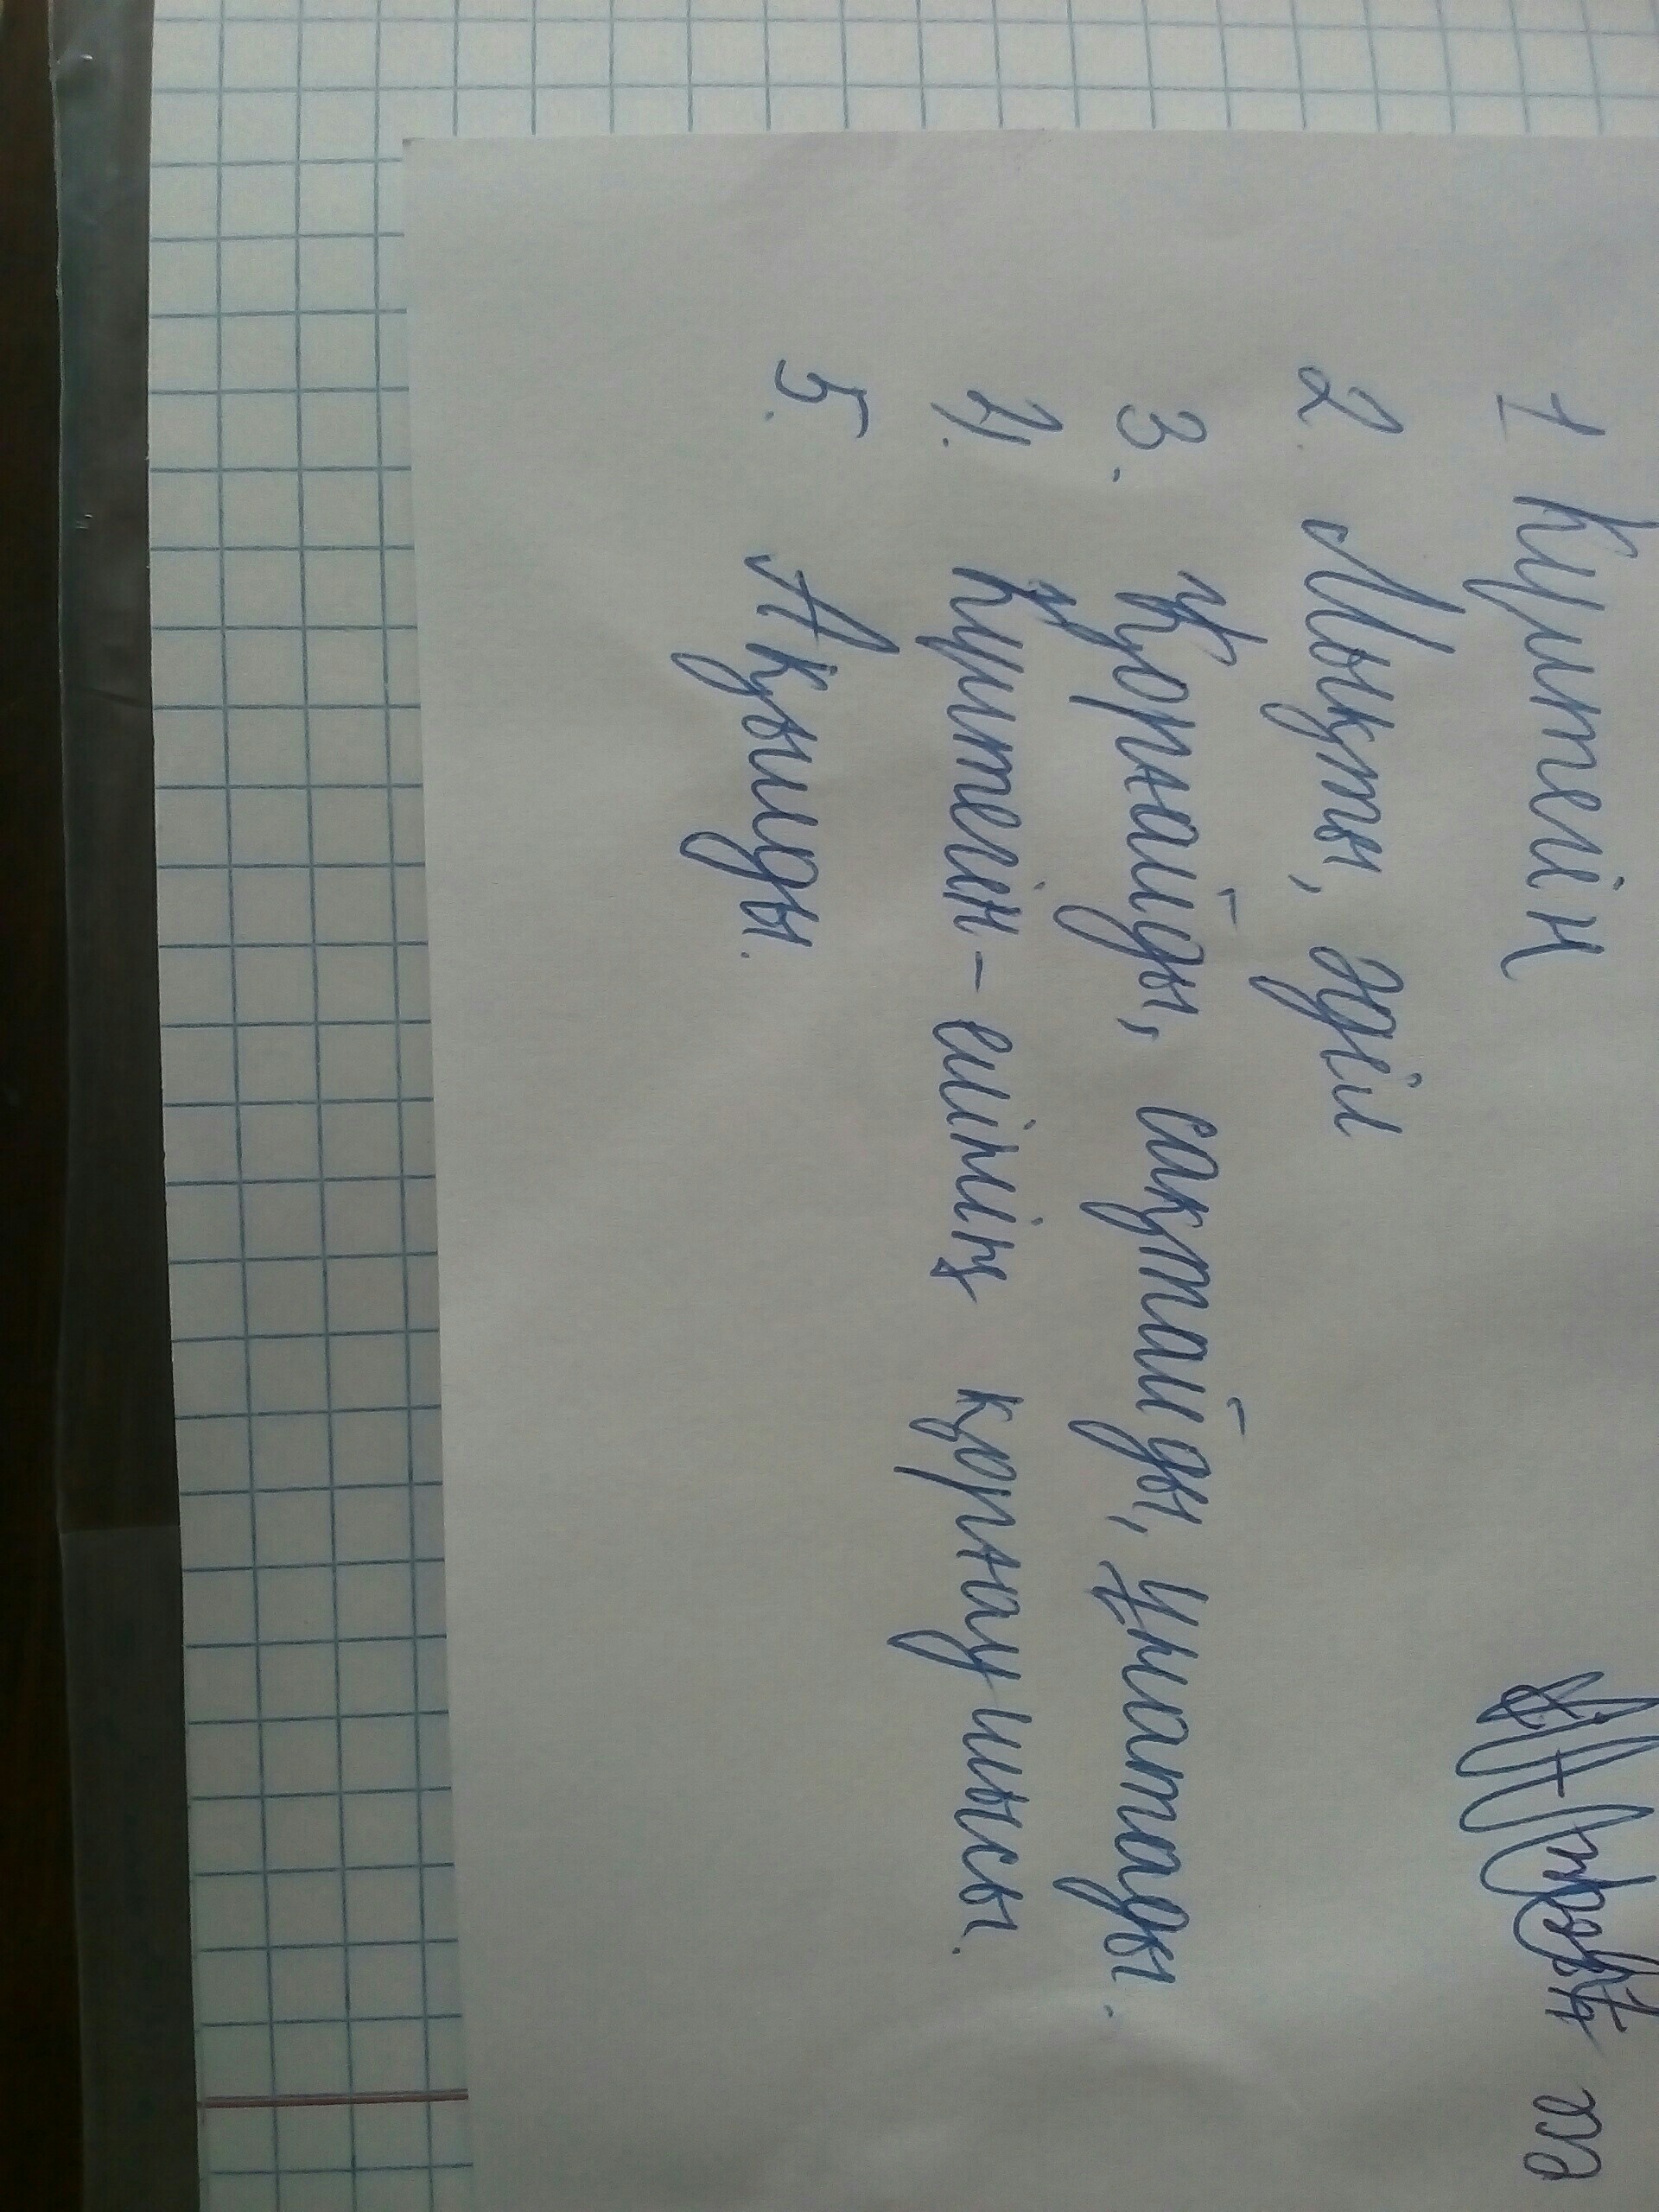 1 Күлтегін
2. Мықты, әділ
3. Қорғайды, сақтайды, ұнатады.
4. Күлтегін - елінің қорғаушысы.
5. Ақылды.